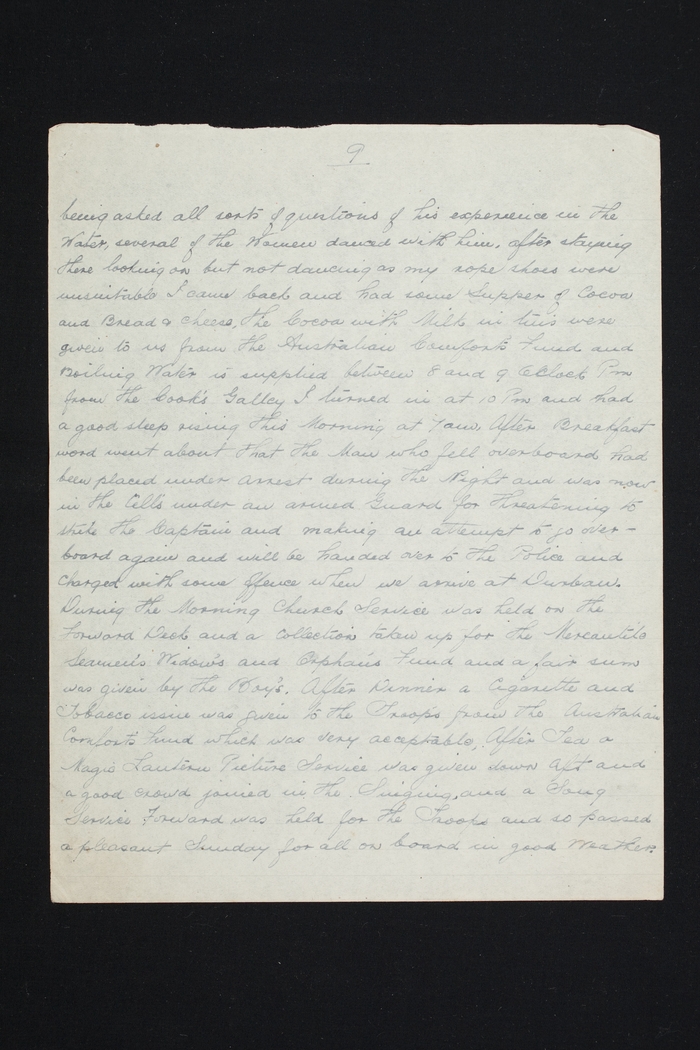 9
being asked all sorts of questions of his experience in the
Water, several of the Women danced with him. after staying
there looking on but not dancing as my rope shoes were
unsuitable I came back and had some Supper of Cocoa
and Bread & Cheese, The Cocoa with Milk in tins were
given to us from the Australian Comforts Fund and
Boiling Water is supplied between 8 and 9 OClock Pm
from the Cook's Galley I turned in at 10 Pm and had
a good sleep rising this Morning at 7am. After Breakfast
word went about that the Man who fell overboard had
been placed under arrest during the Night and was now
in the Cells under an armed Guard for threatening to
strike the Captain and making an attempt to go over-
board again and will be handed over to the Police and
Charged with some offence when we arrive at Durban.
During the Morning Church Service was held on the
Forward Deck and a collection taken up for the Mercantile
Seamen's Widow's and Orphan's Fund and a fair sum
was given by the Boy's. After Dinner a Cigarette and
Tobacco issue was given to the Troops from the Australian
Comforts Fund which was very acceptable. After Tea a
Magic Lantern Picture Service was given down Aft and
a good crowd joined in the Singing, and a Song
Service Forward was held for the Troops and so passed
a pleasant Sunday for all on board in good Weather.